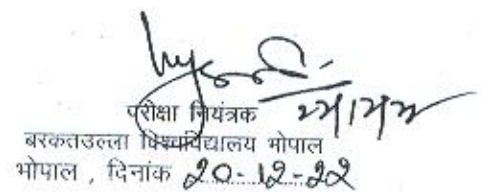 परीक्षा नियंत्रक
बरकतउल्ला विश्वविद्यालय भोपाल
भोपाल , दिनांक 20-12-22